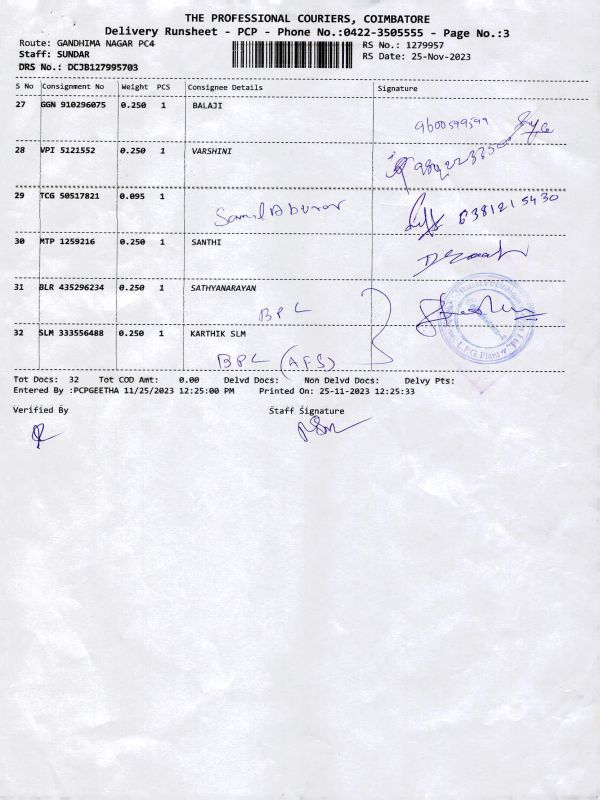 THE PROFESSIONAL COURIERS, COIMBATORE
Delivery Runsheet - PCP - Phone No.:0422-3505555 - Page No.:3
Route: GANDHIMA NAGAR PC4 RS No.: 1279957
Staff: SUNDAR RS Date: 25-Nov-2023
DRS No.: DCJB127995703
S No Consignment No Weight PCS Consignee Details Signature
27 GGN 910296075 0.250 1 BALAJI
9600599599
28 VPI 5121552 0.250 1 VARSHINI
29 TCG 50517821 0.095 1
6381215430
30 MTP 1259216 0.250 1 SANTHI
31 BLR 435296234 0.250 1 SATHYANARAYAN
BPL
32 SLM 333556488 0.250 1 KARTHIK SLM
BPL (AFS)
L.P.G Plant
Tot Docs: 32 Tot COD Amt: 0.00 Delvd Docs: Non Delvd Docs: Delvy Pts:
Entered By :PCPGEETHA 11/25/2023 12:25:00 PM Printed On: 25-11-2023 12:25:33
Verified By Staff Signature